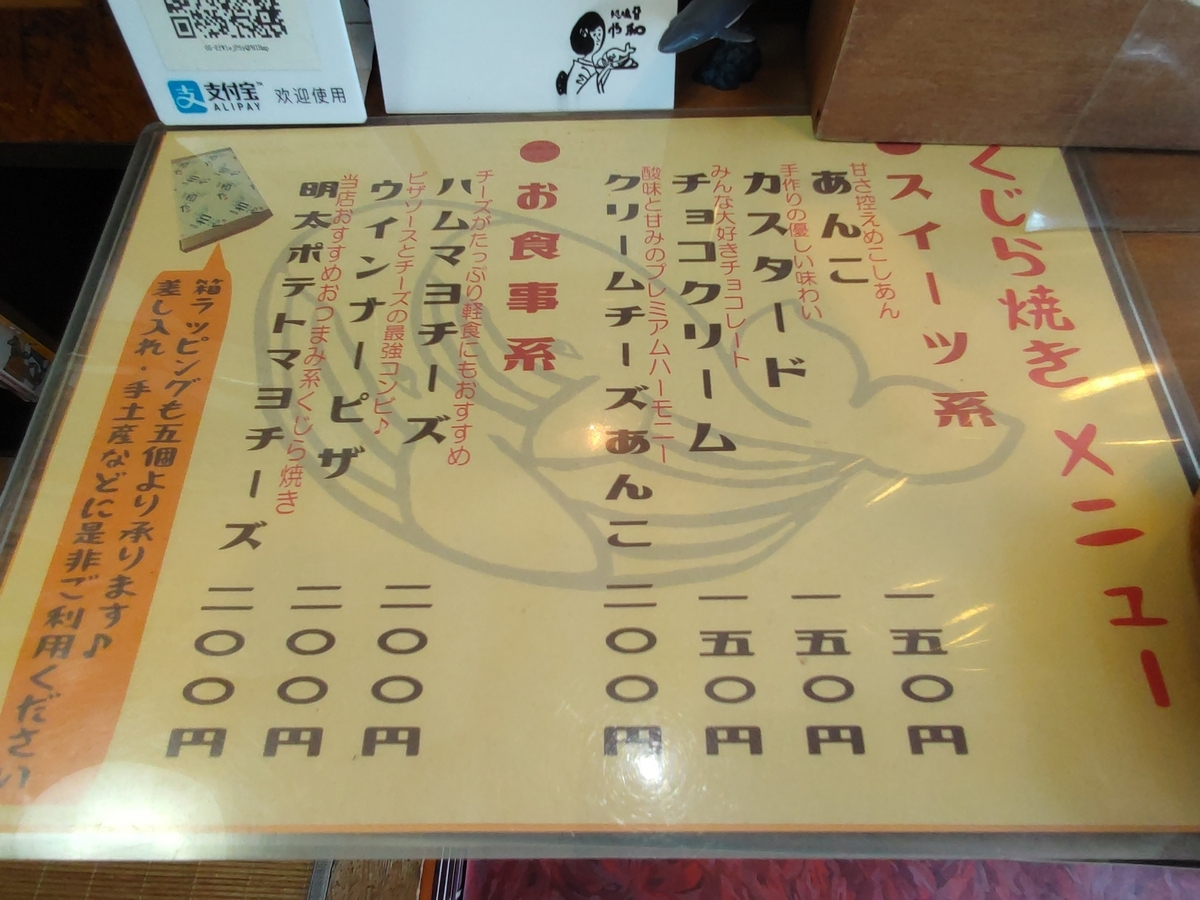 支付宝™
ALIPAY
欢迎使用
くじら焼き メニュー
●スィーツ系
甘さ控えめこしあん
あんこ
一五〇円
手作りの優しい味わい
カスタード
一五〇円
みんな大好きチョコレート
チョコクリーム
一五〇円
酸味と甘みのプレミアムハーモニー
クリームチーズあんこ
二〇〇円
●お食事系
チーズがたっぷり軽食にもおすすめ
ハムマヨチーズ
二〇〇円
ピザソースとチーズの最強コンビ♪
ウインナーピザ
二〇〇円
当店おすすめおつまみ系くじら焼き
明太ポテトマヨチーズ
二〇〇円
箱ラッピングも五個より承ります♪
差し入れ・手土産などに是非ご利用ください